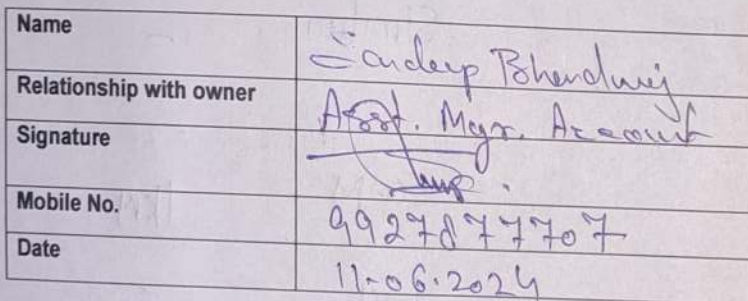 Name Sandeep Bhardwaj
Relationship with owner Asst. Mgr. Account
Signature
Mobile No. 9927877707
Date 11-06-2024